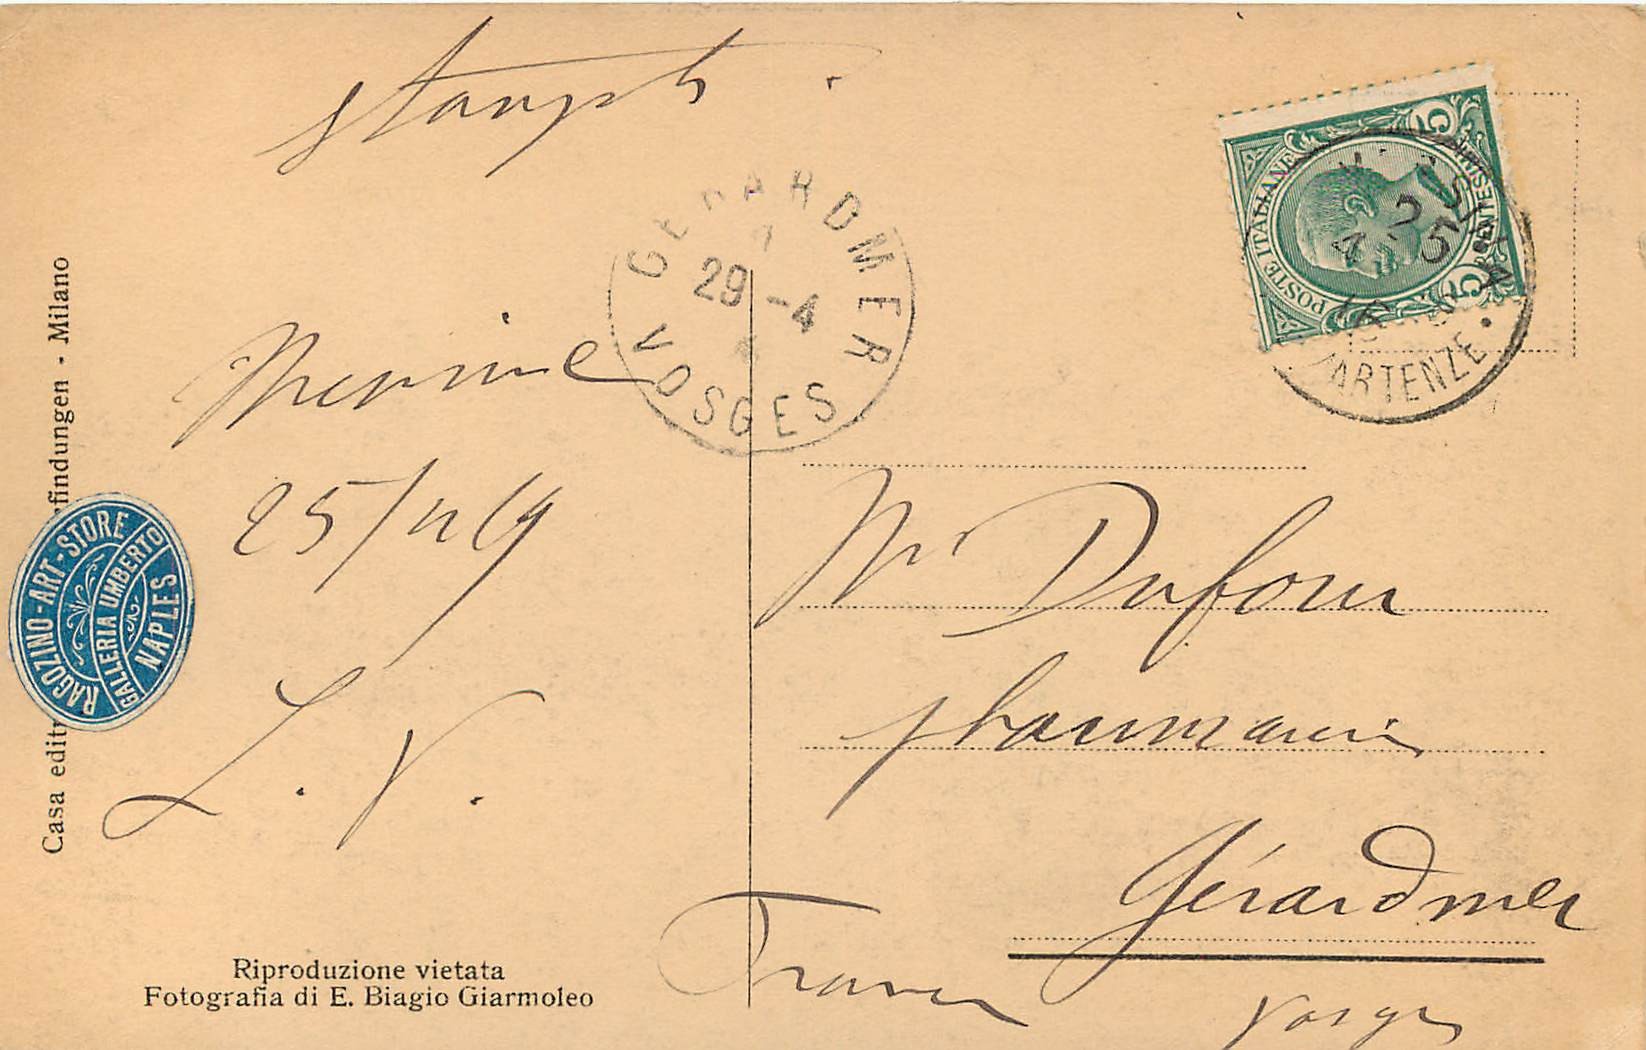 GERARDMER
29-4
VOSGES
POSTE ITALIANE
CENTESIMI
5
5
PARTENZE
Messine
25/4/9
L. V.
Mr Dufour
pharmacien
Gérardmer
Vosges
France
Casa edit
findungen - Milano
RAGOZINO-ART-STORE
GALLERIA UMBERTO
NAPLES
Riproduzione vietata
Fotografia di E. Biagio Giarmoleo